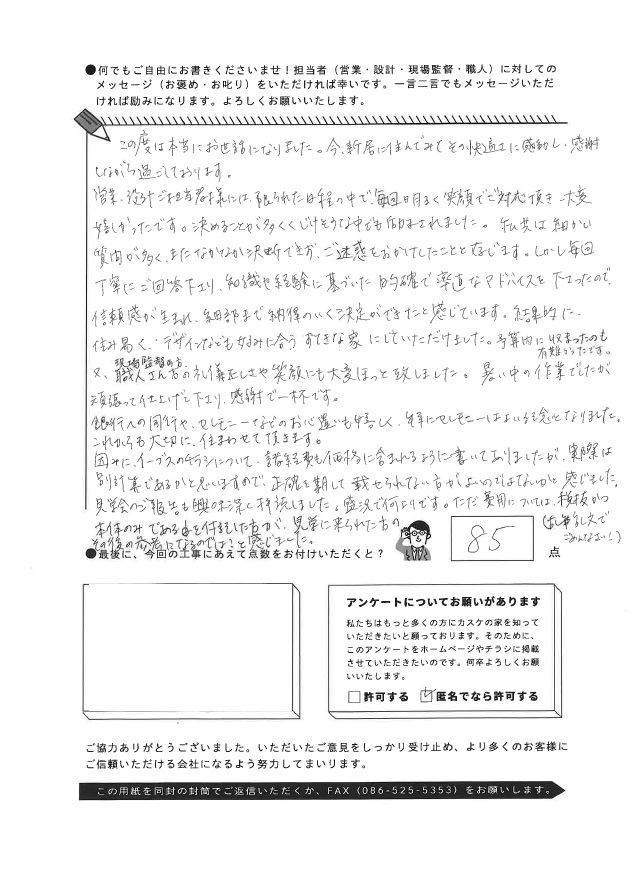 ●何でもご自由にお書きくださいませ！担当者（営業・設計・現場監督・職人）に対しての
メッセージ（お褒め・お叱り）をいただければ幸いです。一言二言でもメッセージいただ
ければ励みになります。よろしくお願いいたします。
この度は本当にお世話になりました。今、新居に住んでみてその快適さに感動し、感謝
しながら過ごしております。
営業、設計ご担当者様には、限られた日程の中で、毎回明るく笑顔でご対応頂き、大変
嬉しかったです。決めることが多くくじけそうな中でも励まされました。私共は細かい
質問が多く、またなかなか決断できず、ご迷惑をおかけしたことと存じます。しかし毎回
丁寧にご回答下さり、知識や経験に基づいた的確で率直なアドバイスを下さったので、
信頼感が生まれ、細部まで納得のいく決定ができたと感じています。結果的に、
住み易く、デザインなども好みに合うすてきな家にしていただけました。予算内に収まったのも
有難かったです。
現場監督の方、
又、職人さん方の礼儀正しさや笑顔にも大変ほっと致しました。暑い中の作業でしたが
頑張って仕上げて下さり、感謝で一杯です。
銀行への同行や、セレモニーなどのお心遣いも嬉しく、特にセレモニーはよい記念となりました。
これからも大切に、住まわせて頂きます。
因みに、イーブスのチラシについて、諸経費も価格に含まれるように書いてありましたが、実際は
別計算であるかと思いますので、正確を期して載せられない方がよいのではないかと感じました。
見学会のご報告も興味深く拝読しました。盛況で何よりです。ただ費用については、税抜かつ
本体のみである旨を付記した方が、見学に来られた方の
その後の参考になるのでは？と感じました。
（乱筆乱文で
ごめんなさい！）
●最後に、今回の工事にあえて点数をお付けいただくと？
85
点
アンケートについてお願いがあります
私たちはもっと多くの方にカスケの家を知って
いただきたいと願っております。そのために、
このアンケートをホームページやチラシに掲載
させていただきたいのです。何卒よろしくお願
いいたします。
□許可する ☑匿名でなら許可する
ご協力ありがとうございました。いただいたご意見をしっかり受け止め、より多くのお客様に
ご信頼いただける会社になるよう努力してまいります。
この用紙を同封の封筒でご返信いただくか、FAX（086-525-5353）をお願いします。